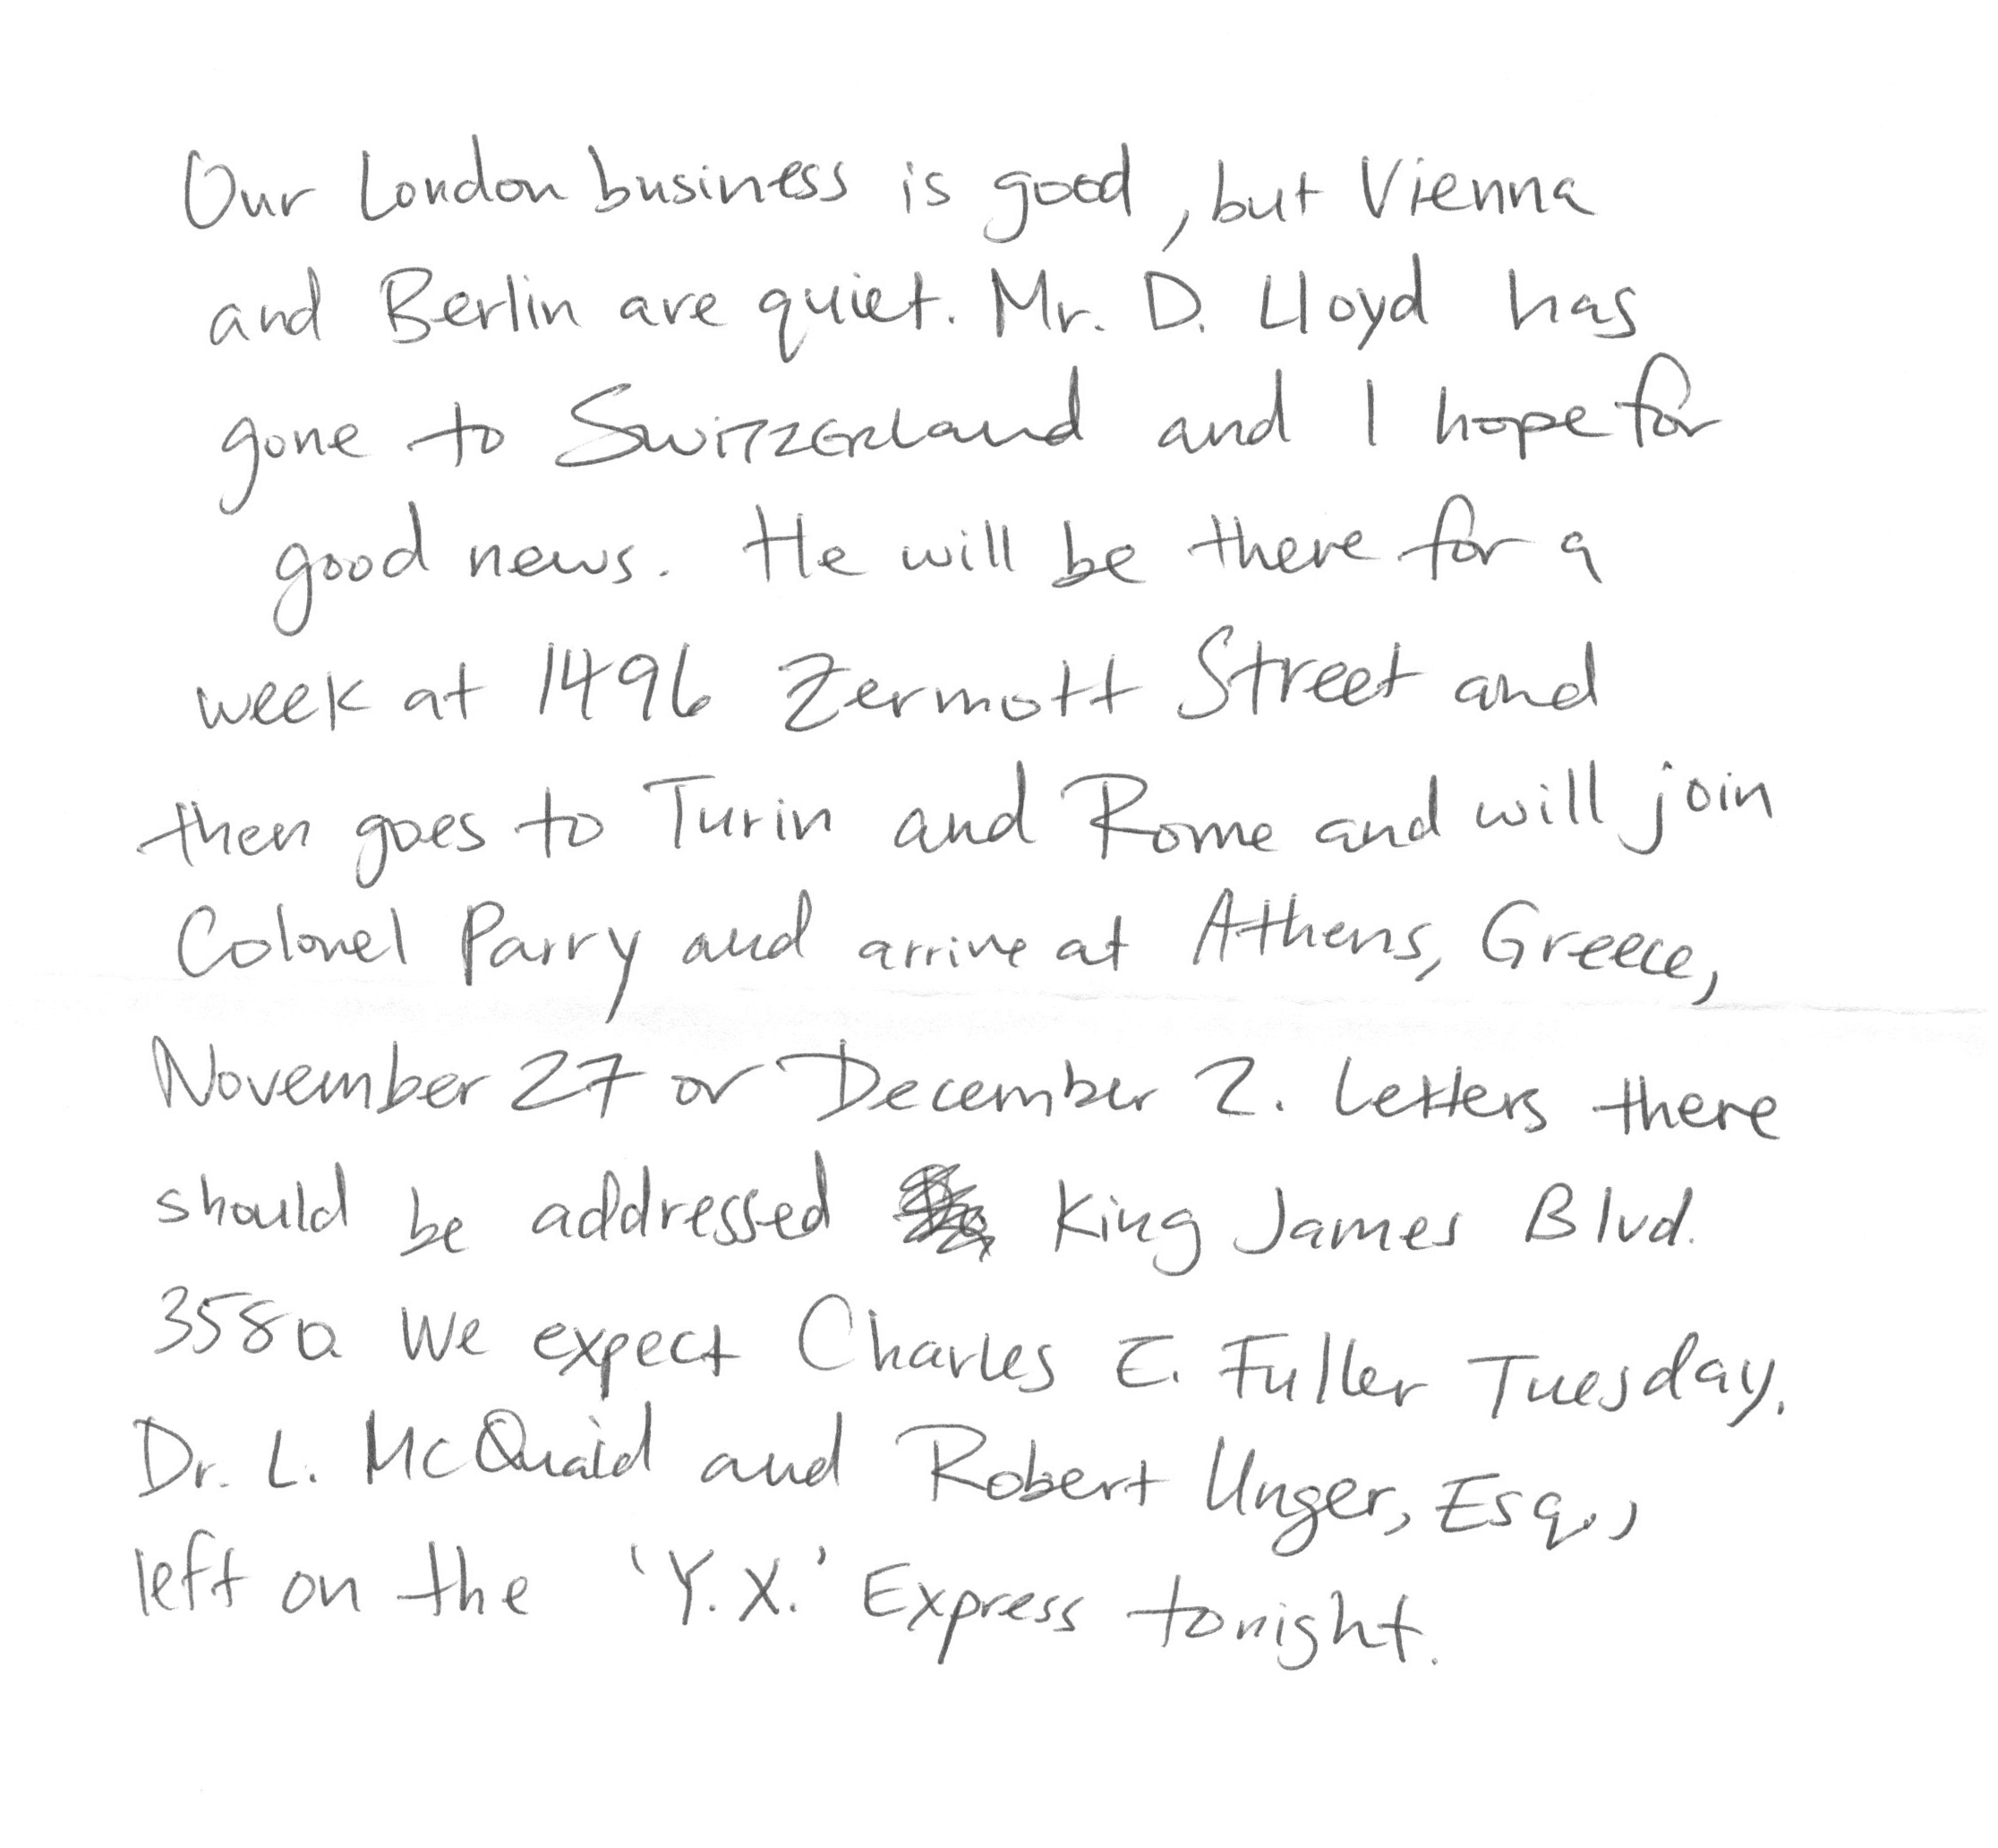 Our London business is good, but Vienna
and Berlin are quiet. Mr. D. Lloyd has
gone to Switzerland and I hope for
good news. He will be there for a
week at 1496 Zermott Street and
then goes to Turin and Rome and will join
Colonel Parry and arrive at Athens, Greece,
November 27 or December 2. Letters there
should be addressed King James Blvd.
3580. We expect Charles E. Fuller Tuesday.
Dr. L. McQuaid and Robert Unger, Esq.,
left on the 'Y.X.' Express tonight.